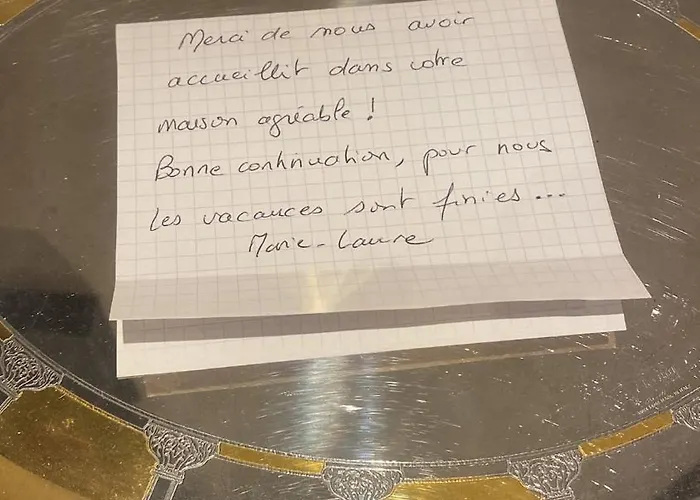 Merci de nous avoir
accueillit dans votre
maison agréable !
Bonne continuation, pour nous
les vacances sont finies ...
Marie-Laure